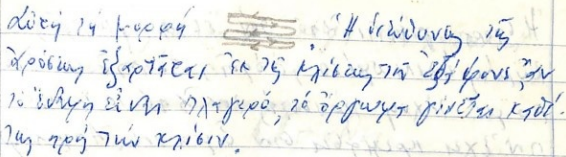 αὐτὴ τὴ μορφὴ Ἡ διεύθυνσις τῆς
ἀρόσεως ἐξαρτᾶται ἐκ τῆς κλίσεως τοῦ ἐδάφους, ἂν
τὸ ἔδαφος εἶναι πλαγερό, τὸ ὄργωμα γίνεται καθέ-
τως πρὸς τὴν κλίσιν.